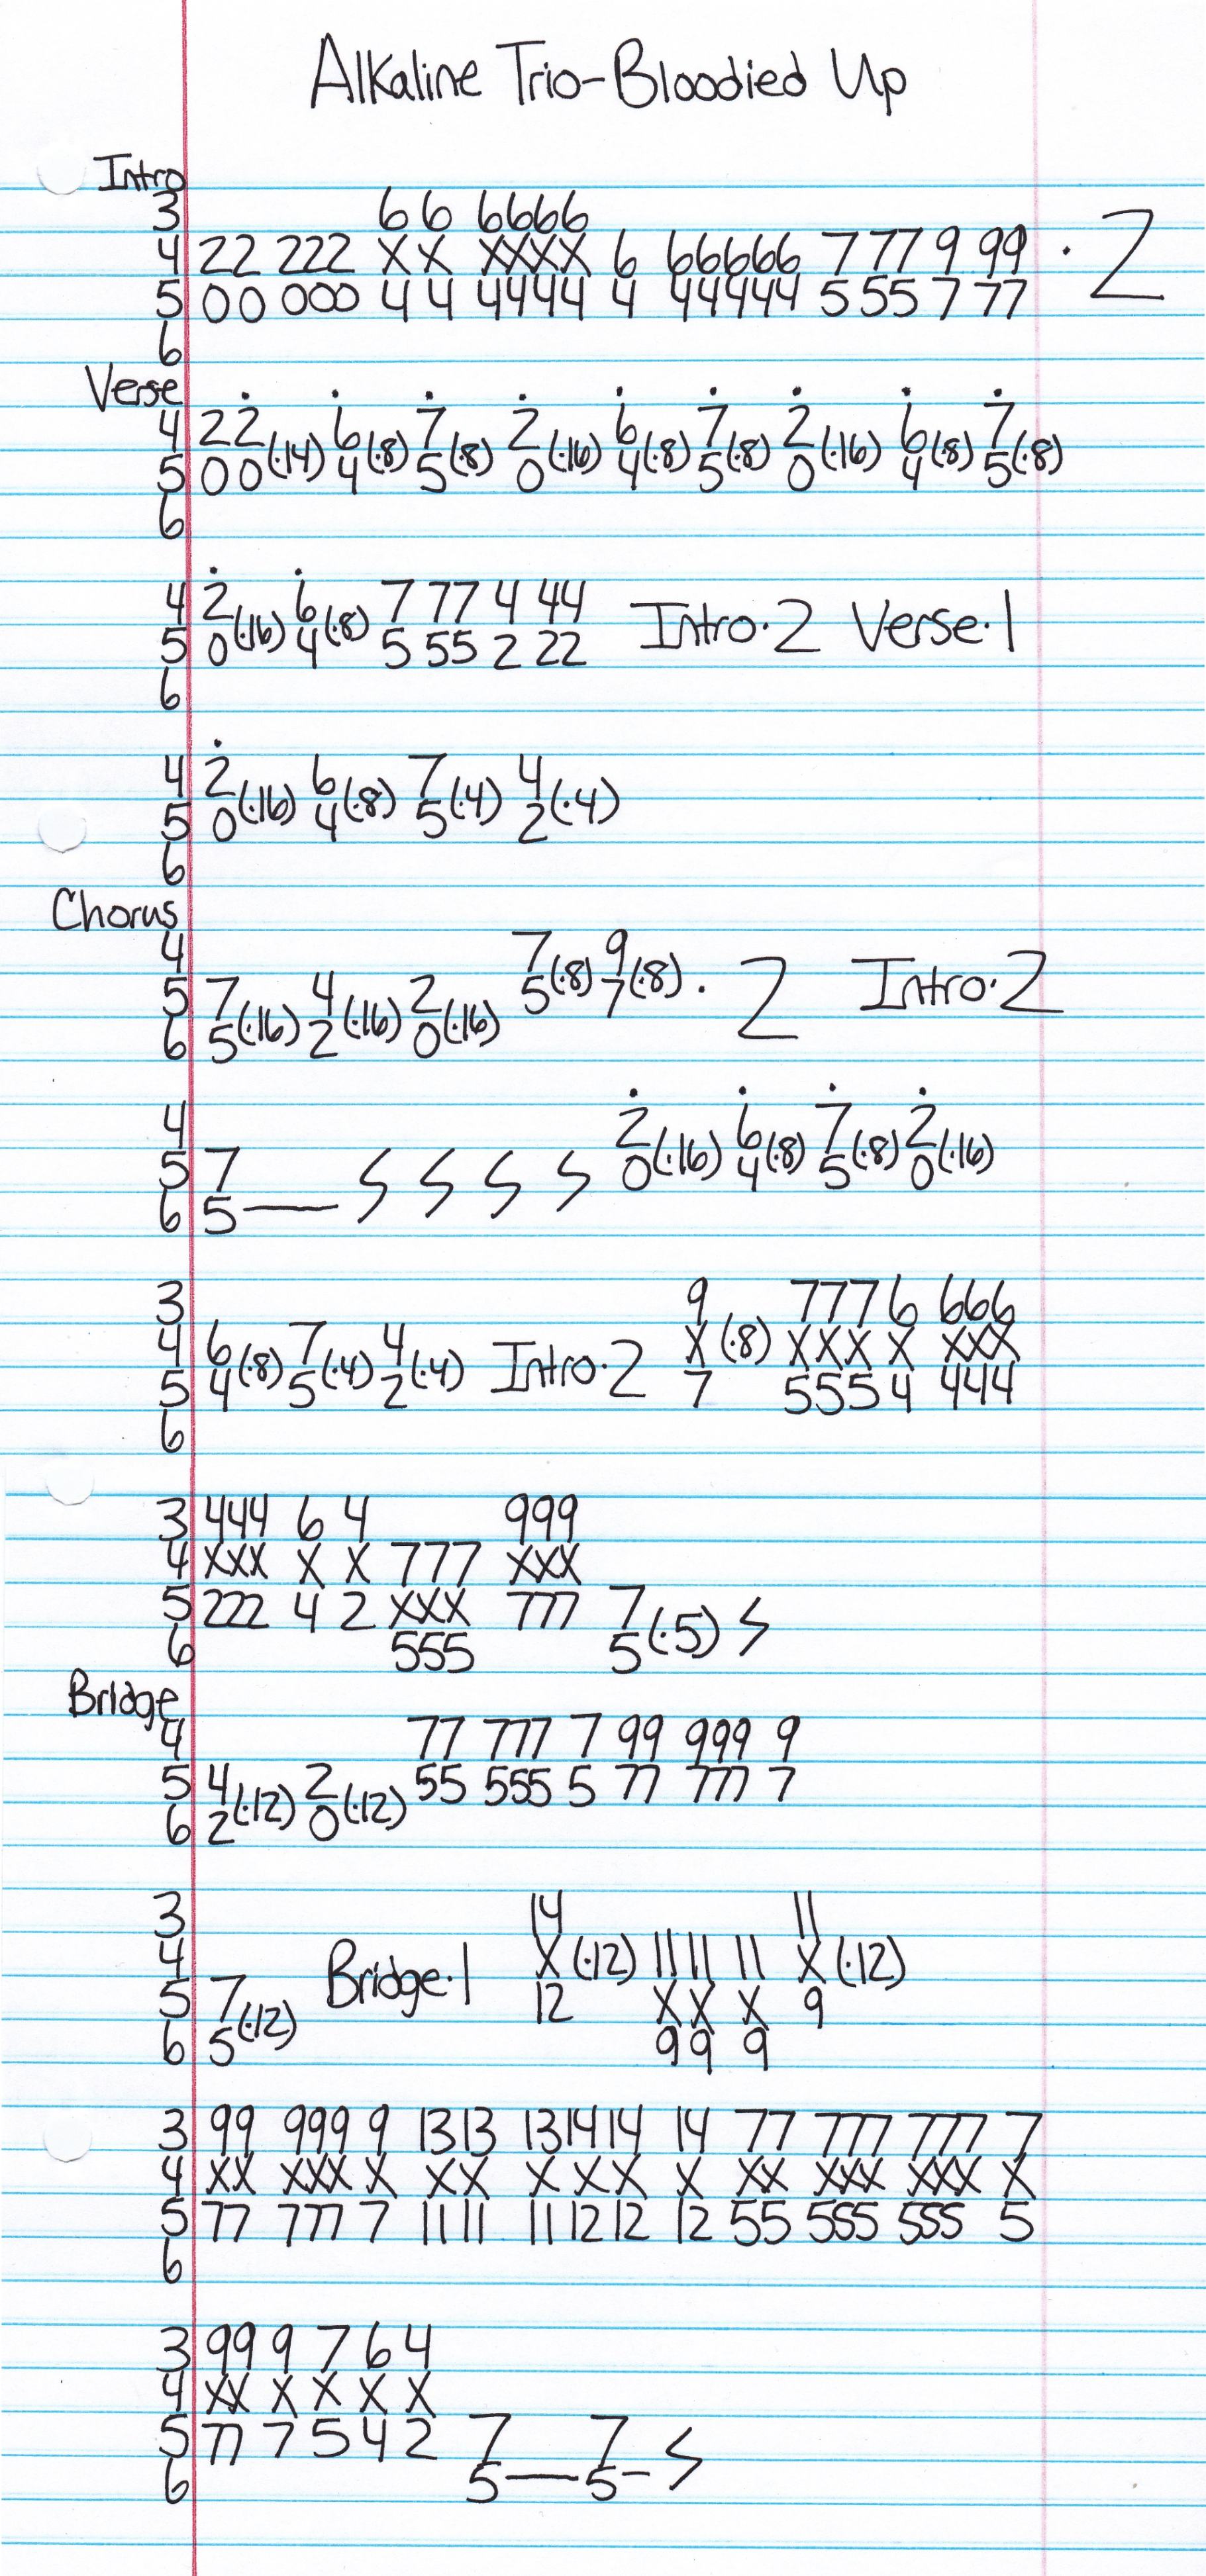 Alkaline Trio-Bloodied Up
Intro
3 6 6 6666
4 22 222 X X XXXX 6 66666 7 77 9 99 · 2
5 00 000 4 4 4444 4 44444 5 55 7 77
6
Verse
4 22(·14) 6(·8) 7(·8) 2(·16) 6(·8) 7(·8) 2(·16) 6(·8) 7(·8)
5 00 4 5 0 4 5 0 4 5
6
4 2(·16) 6(·8) 7 77 4 44 Intro·2 Verse·1
5 0 4 5 55 2 22
6
4 2(·16) 6(·8) 7(·4) 4(·4)
5 0 4 5 2
6
Chorus
4 7(·8) 9(·8) · 2 Intro·2
5 7(·16) 4(·16) 2(·16) 5 7
6 5 2 0
4 2(·16) 6(·8) 7(·8) 2(·16)
5 7 0 4 5 0
6 5—
3 9 777 6 666
4 6(·8) 7(·4) 4(·4) Intro·2 X (·8) XXX X XXX
5 4 5 2 7 555 4 444
6
3 444 6 4 999
4 XXX X X 777 XXX
5 222 4 2 XXX 777 7(·5)
6 555 5
Bridge
4 77 777 7 99 999 9
5 4(·12) 2(·12) 55 555 5 77 777 7
6 2 0
3 14 11
4 Bridge·1 X (·12) 11 11 11 X (·12)
5 7(·12) 12 X X X 9
6 5 9 9 9
3 99 999 9 13 13 13 14 14 14 77 777 777 7
4 XX XXX X X X X X X X XX XXX XXX X
5 77 777 7 11 11 11 12 12 12 55 555 555 5
6
3 99 9 7 6 4
4 XX X X X X
5 77 7 5 4 2 7 7
6 5—5–